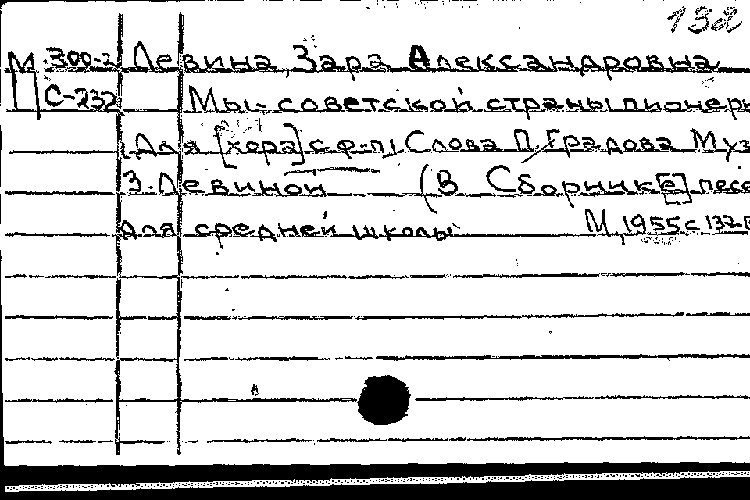 132
М 300-2 Левина, Зара Александровна
С-232 Мы-советской страны пионеры
[Для [хора] с ф-п] Слова П. Градова Муз
З. Левиной (В Сборник[е] песе
для средней школы М, 1955 с 132-